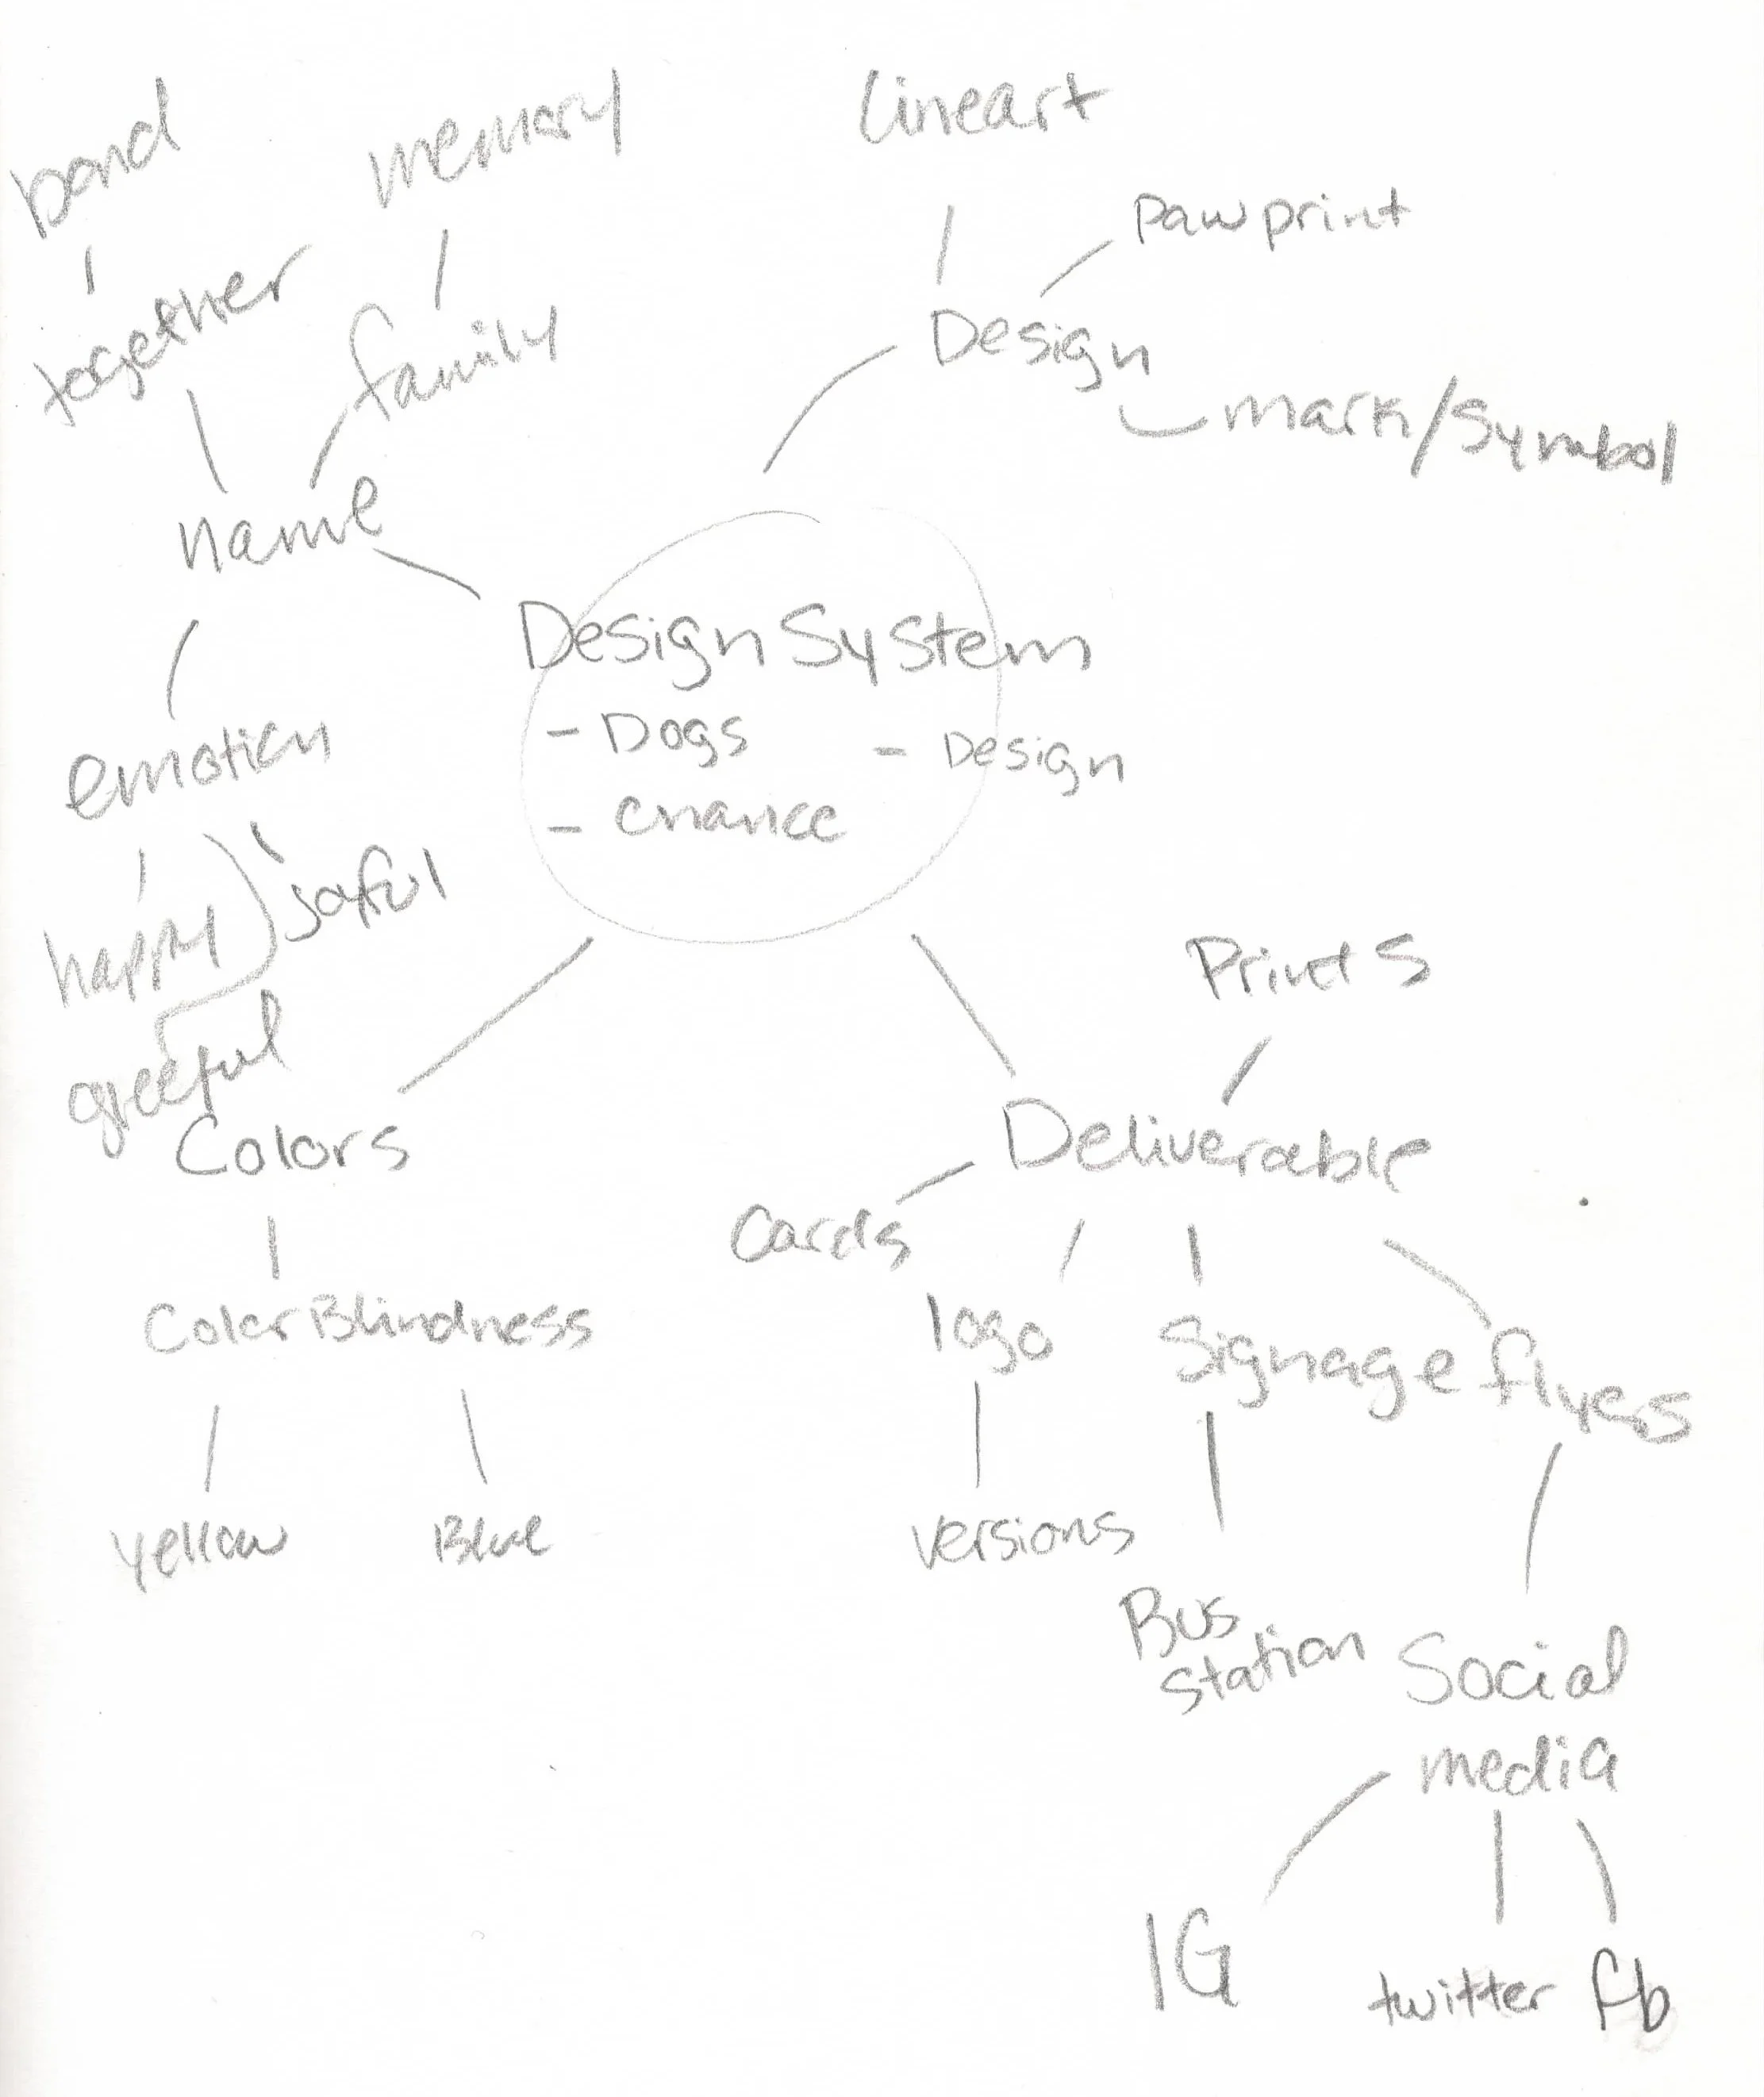 bond
memory
lineart
paw print
together
family
Design
mark/symbol
name
Design System
- Dogs
- Design
- chance
emotion
happy
joyful
gleeful
Colors
Color Blindness
yellow
Blue
Prints
Deliverable
Cards
logo
Signage
flyers
versions
Bus
station
Social
media
IG
twitter
fb